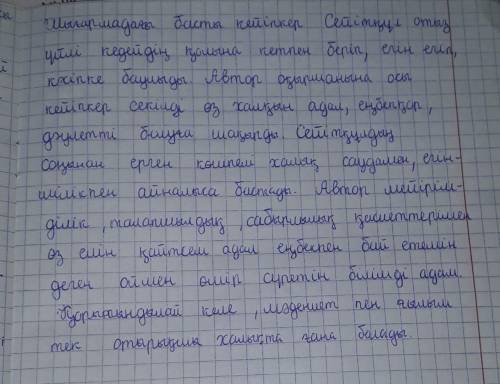 Шығармадағы басты кейіпкер Сейітқұл отыз
үйлі кедейдің қолына кетпен беріп, егін егіп,
кәсіпке баулыды. Автор оқырманына осы
кейіпкер секілді өз халқын адал, еңбекқор,
дәулетті болуға шақырды. Сейітқұлдың
соңынан ерген көшпелі халық саудамен, егін-
шілікпен айналыса бастады. Автор мейірім-
ділік, талапшылдық, сабырлылық қасиеттерімен
өз елін қайтсем адал еңбекпен бай етемін
деген оймен өмір сүретін білімді адам.
Қорытындылай келе, мәдениет пен ғылым
тек отырықшы халықта ғана болады.